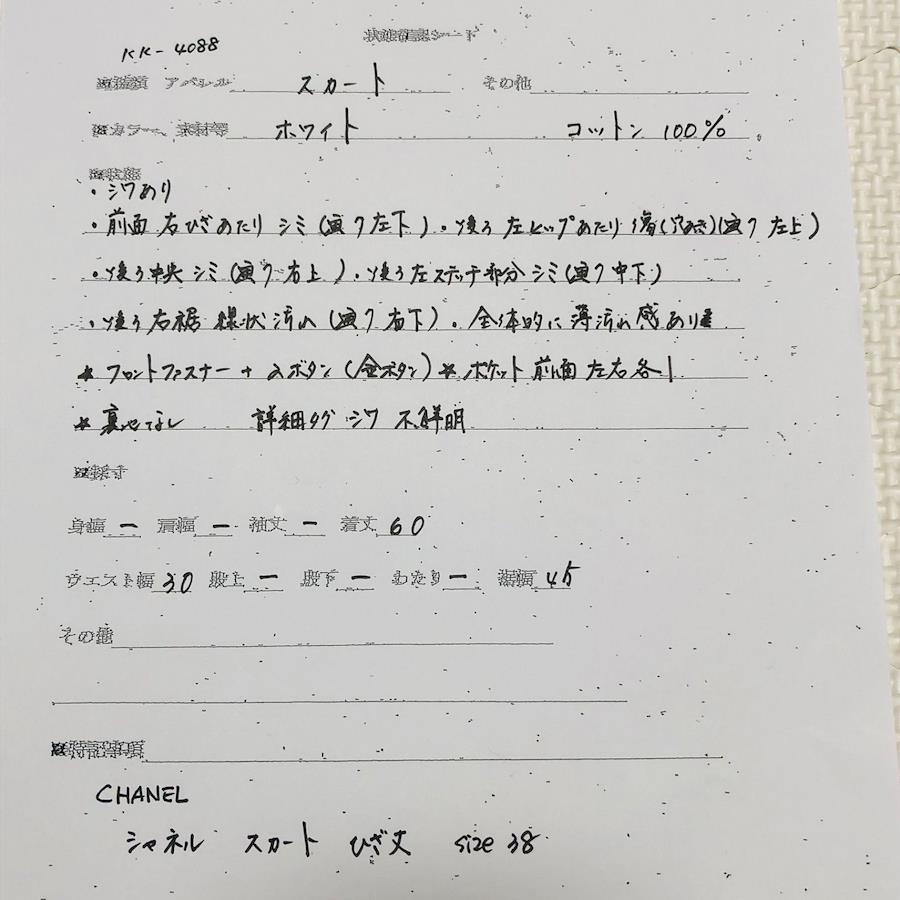 KK-4088
状態確認シート
アパレル スカート その他
カラー、素材等 ホワイト コットン 100%
状態
・シワあり
・前面 右ひざあたり シミ(画7左下)・後ろ 左ヒップあたり 傷(画7 左上)
・後ろ中央 シミ(画7右上)・後ろ左ステッチ部分 シミ(画7中下)
・後ろ右裾 線状汚れ(画7右下)・全体的に薄汚れ感あり
* フロントファスナー + 2ボタン(金ボタン) * ポケット 前面 左右各1
* 裏地なし 詳細タグ シワ 不鮮明
採寸
身幅 ー 肩幅 ー 袖丈 ー 着丈 60
ウエスト幅 30 股上 ー 股下 ー わたり ー 裾幅 45
その他
特記事項
CHANEL
シャネル スカート ひざ丈 size 38